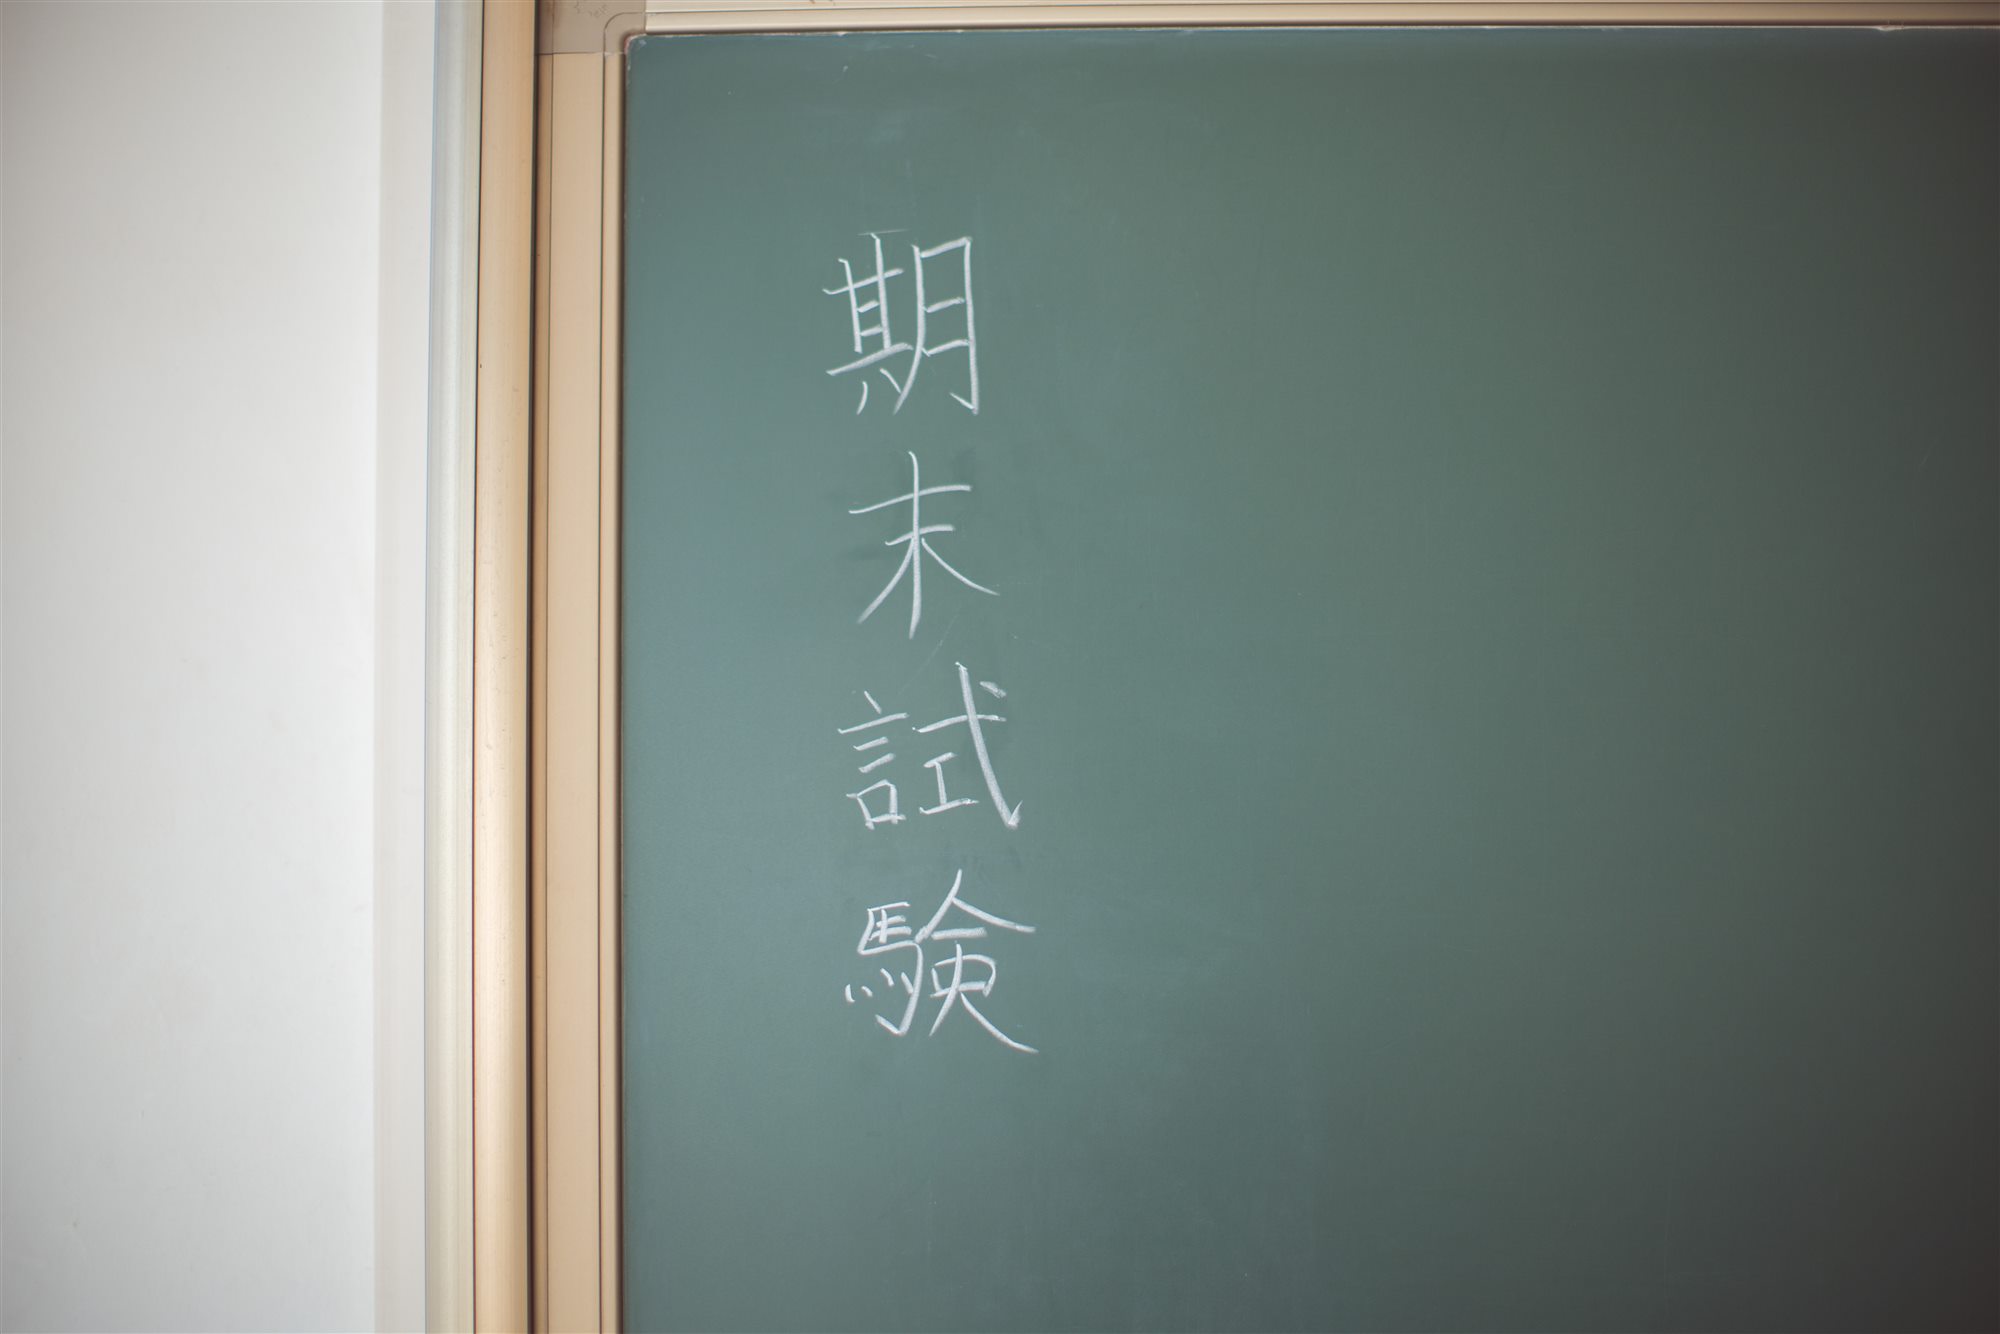 期末試験